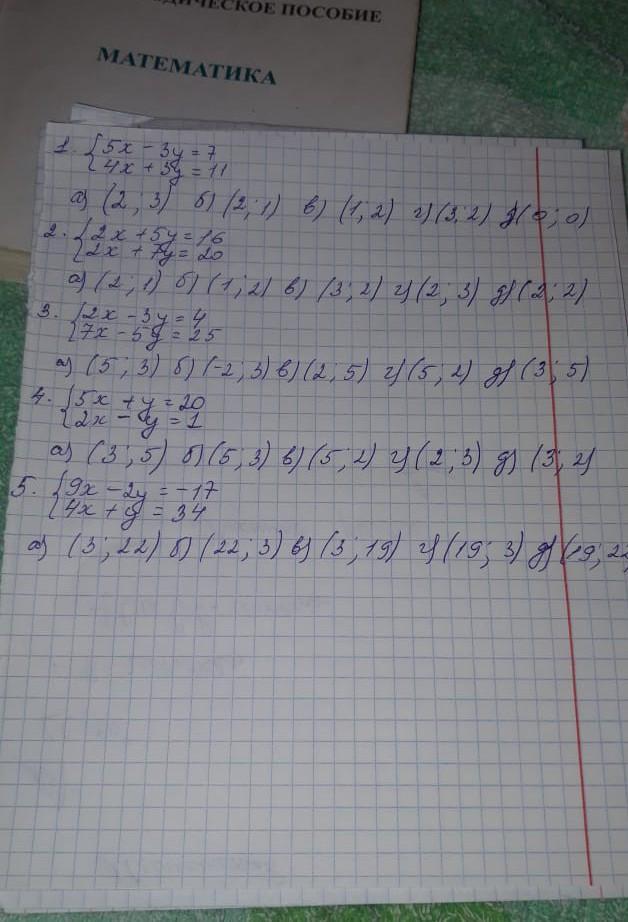 ДИЧЕСКОЕ ПОСОБИЕ
МАТЕМАТИКА
1. { 5x - 3y = 7
4x + 3y = 11
а) (2; 3) б) (2; 1) в) (1; 2) г) (3; 2) д) (0; 0)
2. { 2x + 5y = 16
2x + 7y = 20
а) (2; 1) б) (1; 2) в) (3; 2) г) (2; 3) д) (2; 2)
3. { 2x - 3y = 4
7x - 5y = 25
а) (5; 3) б) (-2; 3) в) (2; 5) г) (5; 2) д) (3; 5)
4. { 5x + y = 20
2x - y = 1
а) (3; 5) б) (5; 3) в) (5; 2) г) (2; 3) д) (3; 2)
5. { 9x - 2y = -17
4x + y = 34
а) (3; 22) б) (22; 3) в) (3; 19) г) (19; 3) д) (19; 22)